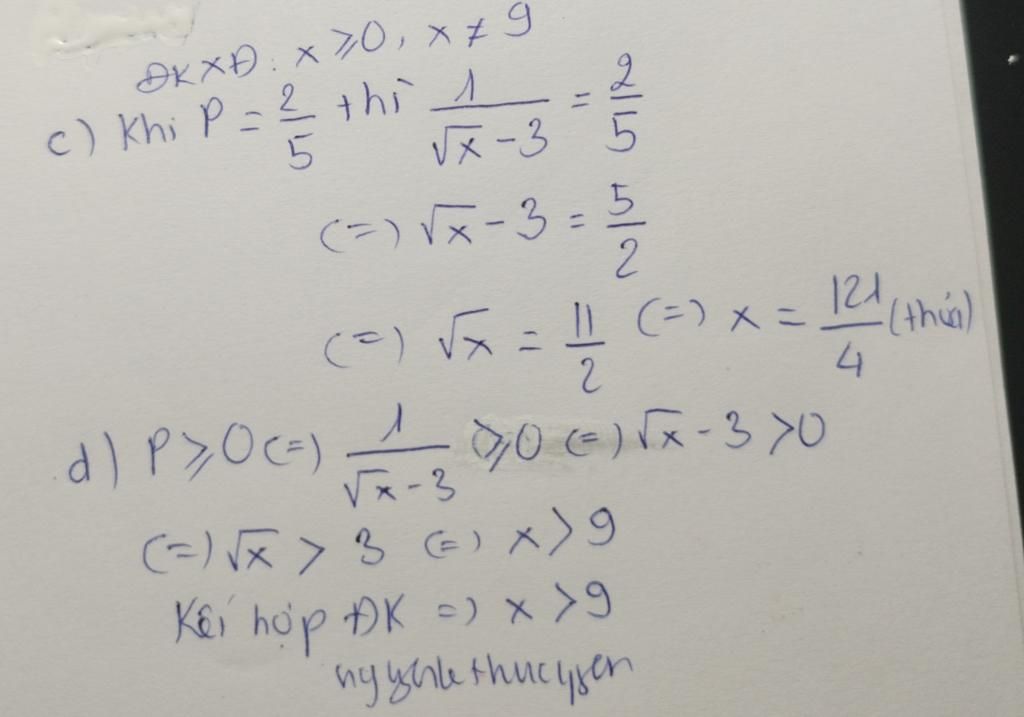 ĐKXĐ: x ≥ 0, x ≠ 9
c) Khi P = 2/5 thì 1/(√x - 3) = 2/5
(=) √x - 3 = 5/2
(=) √x = 11/2 (=) x = 121/4 (thỏa)
d) P ≥ 0 (=) 1/(√x - 3) ≥ 0 (=) √x - 3 > 0
(=) √x > 3 (=) x > 9
Kết hợp ĐK =) x > 9